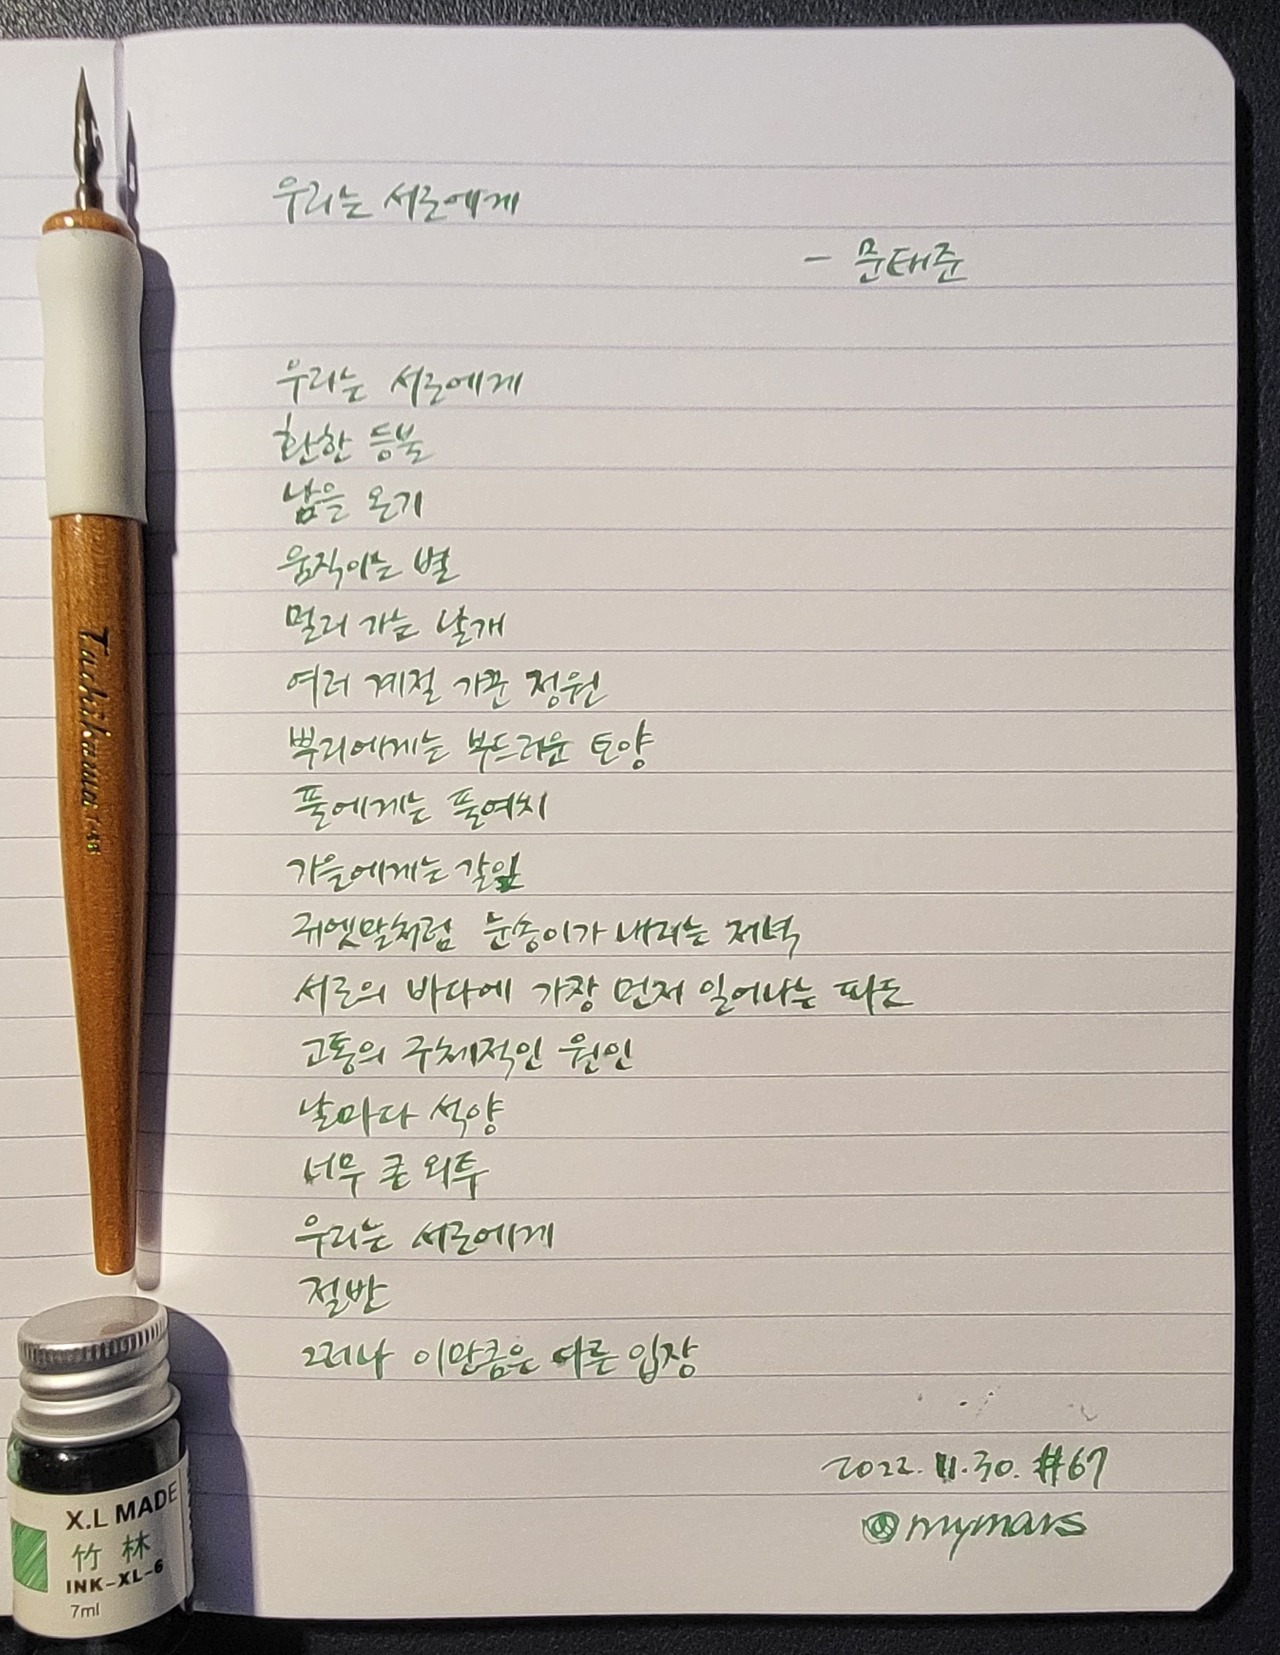 우리는 서로에게
- 문태준
우리는 서로에게
환한 등불
남을 온기
움직이는 별
멀리 가는 날개
여러 계절 가꾼 정원
뿌리에게는 부드러운 토양
풀에게는 풀여치
가을에게는 갈잎
귀엣말처럼 눈송이가 내리는 저녁
서로의 바다에 가장 먼저 일어나는 파도
고통의 구체적인 원인
날마다 석양
너무 큰 외투
우리는 서로에게
절반
그러나 이만큼은 다른 입장
2022. 11. 30. #67
@mymars
Tachikawa T-40
X.L MADE
竹林
INK-XL-6
7ml